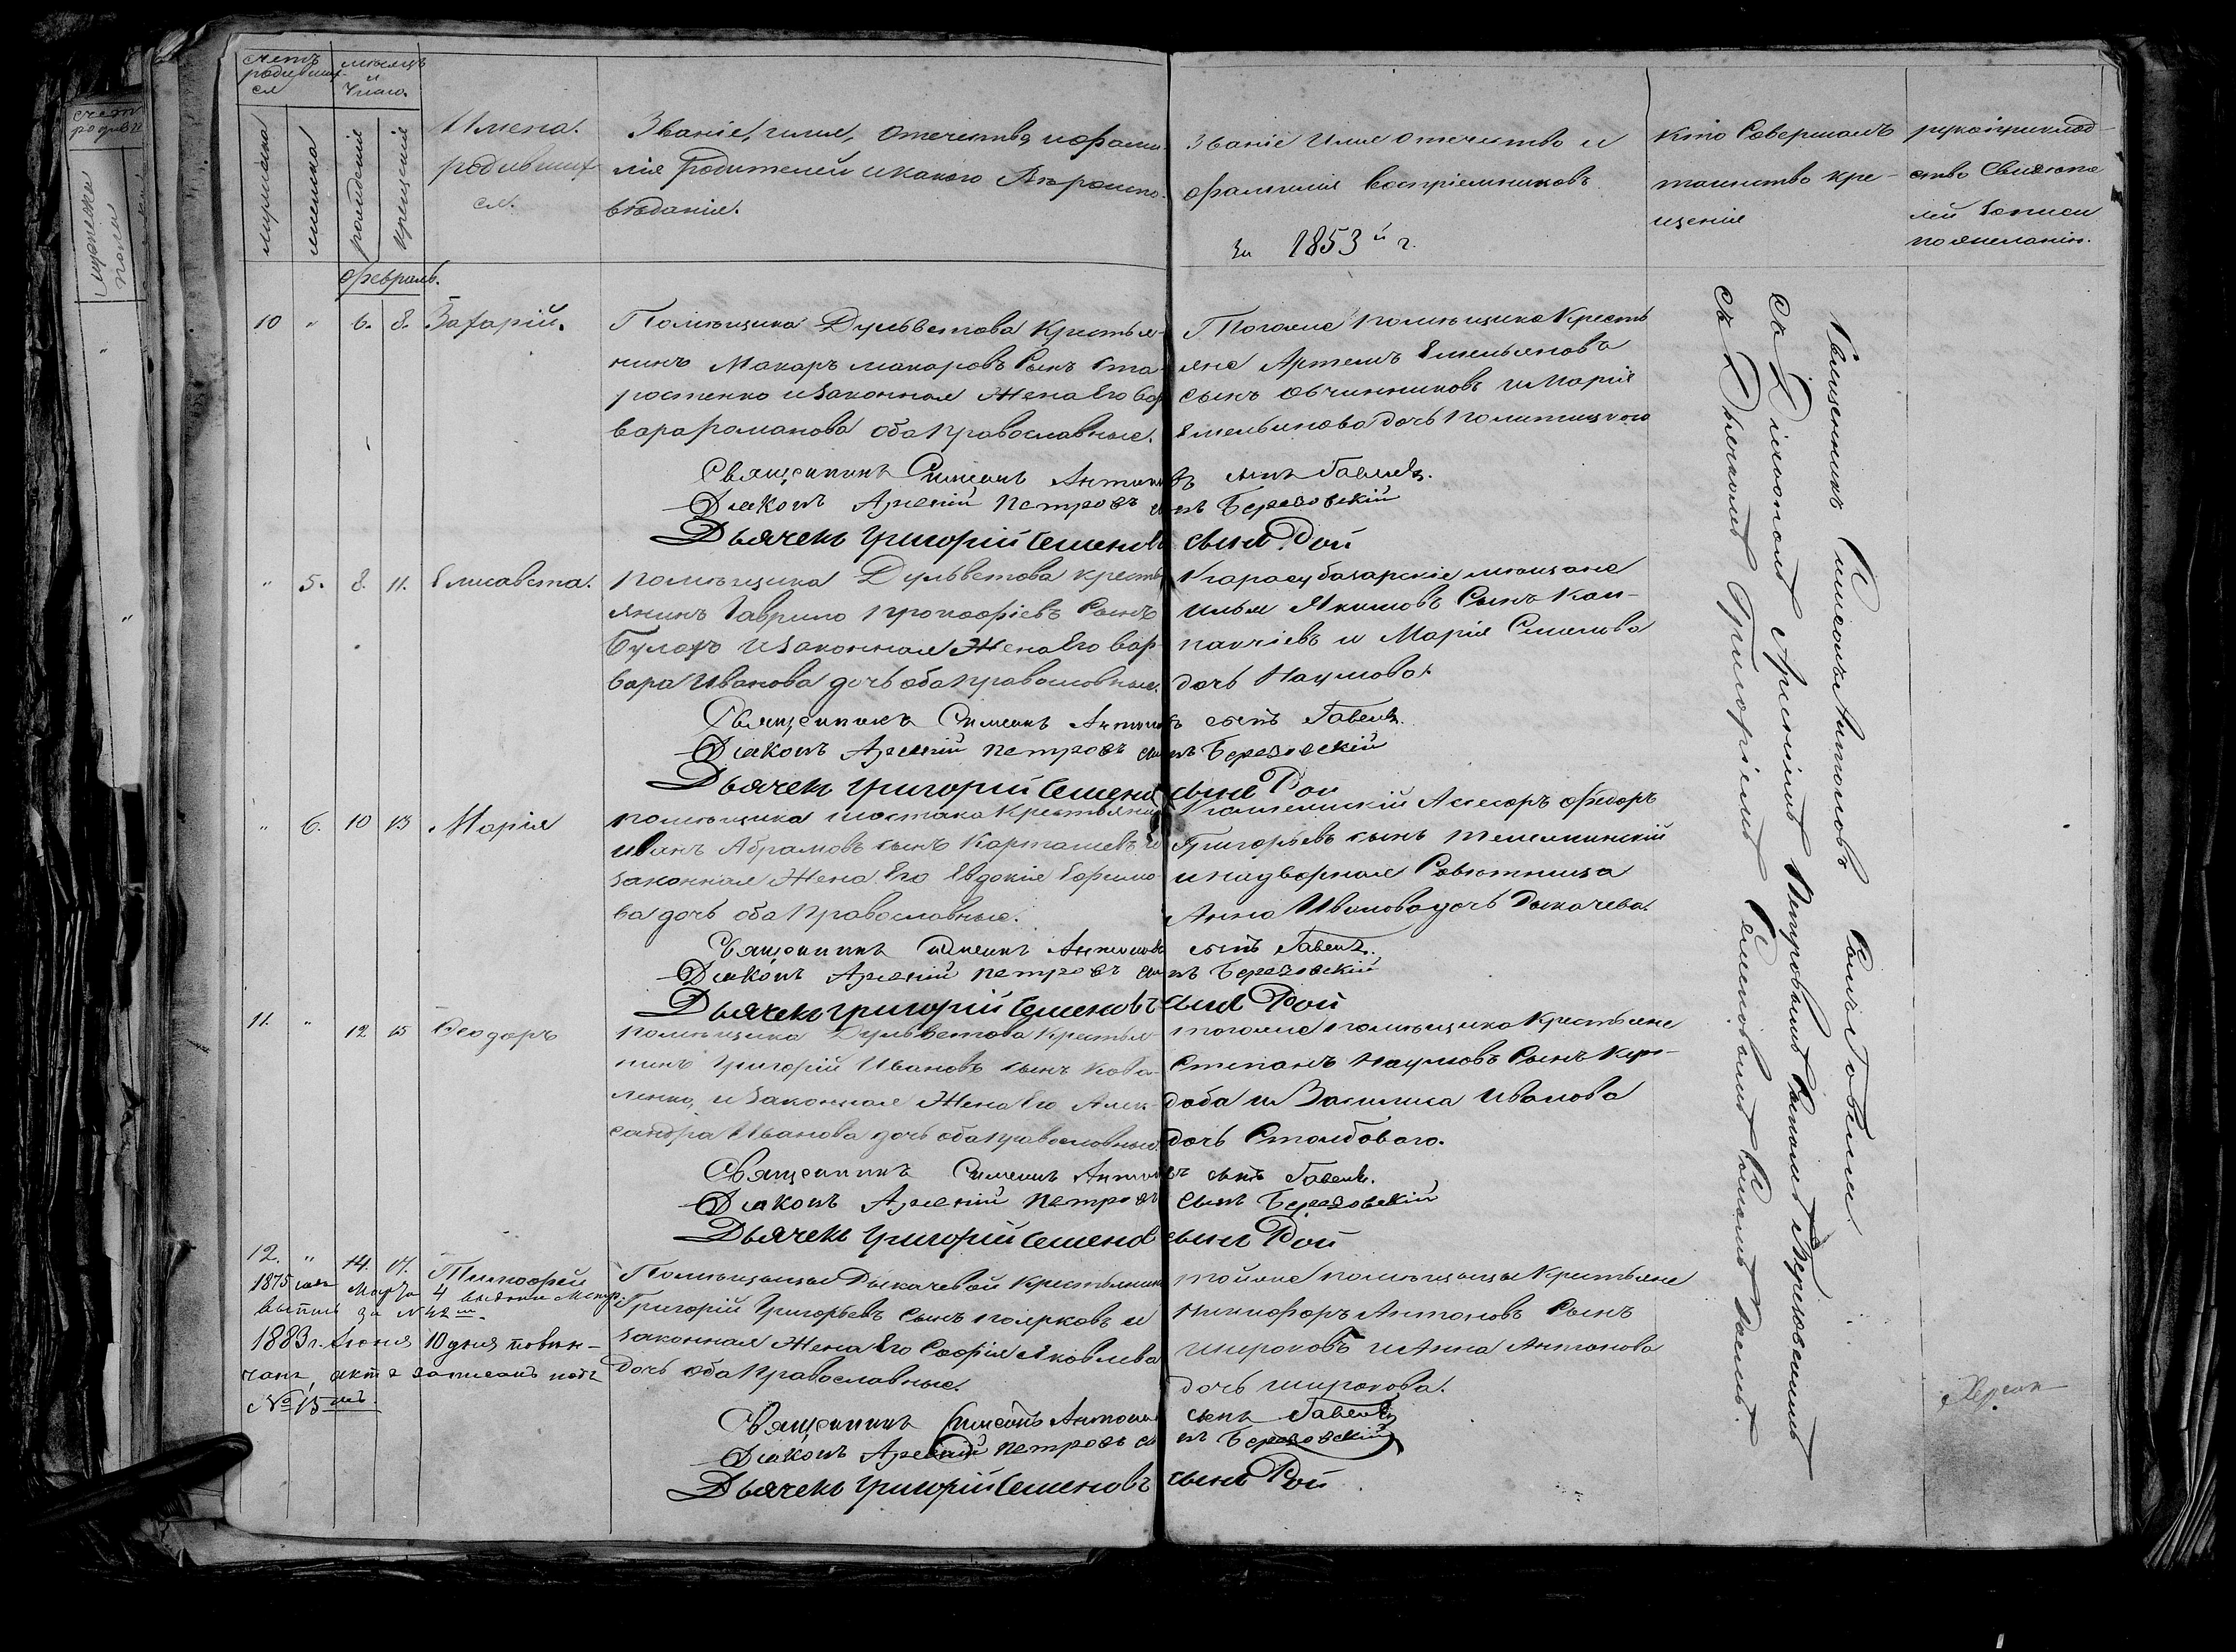 счетъ родившихся
мужеска
женска
мѣсяцъ и число.
рожденія
крещенія
Имена. родившихся.
Званіе, имя, отечество, и фами-
лія родителей и какого вѣроиспо-
вѣданія.
Званіе имя отечество и
фамилія воспріемниковъ
За 1853й г.
кто совершалъ
таинство кре-
щенія
рукоприклад-
ство свидѣте-
лей записи
по желанію.
Февраль.
10 " 6. 8. Захарій.
Помѣщика Дульветова крестья-
нинъ Макаръ Макаровъ сынъ Ста-
ростенко и законная жена его вар-
вара Романова оба православные.
Тогоже помѣщика кресть
яне Артемъ Емельяновъ
сынъ Овчинниковъ и Марія
Емельянова дочь
Священникъ Симеонъ Антоновъ сынъ Гавель.
Діаконъ Арсеній Петровъ сынъ Березовскій
Дьячекъ Григорій Семеновъ сынъ Рой
" 5. 8. 11. Елисавета.
помѣщика Дульветова кресть
янинъ Гаврило Прокофіевъ сынъ
Булахъ и законная жена его вар-
вара Иванова дочь оба православные.
Карасубазарскіе мѣщане
Илья Якимовъ сынъ Кап-
пакчіевъ и Марія Симонова
дочь Наумова.
Священникъ Симеонъ Антоновъ сынъ Гавель.
Діаконъ Арсеній Петровъ сынъ Березовскій
Дьячекъ Григорій Семеновъ сынъ Рой
" 6. 10 13 Марія
помѣщика Шостака крестьянинъ
Иванъ Абрамовъ сынъ Карташевъ и
законная жена его Евдокія Ефимо-
ва дочь оба православные.
Асесоръ Федоръ
Григорьевъ сынъ
и надворная совѣтница
Анна Иванова дочь Дыкачева.
Священникъ Симеонъ Антоновъ сынъ Гавель.
Діаконъ Арсеній Петровъ сынъ Березовскій
Дьячекъ Григорій Семеновъ сынъ Рой
11. " 12 15 Ѳеодоръ
помѣщика Дульветова крестья
нинъ Григорій Ивановъ сынъ Кова-
ленко, и законная жена его Алек-
сандра Иванова дочь оба православные.
тогоже помѣщика крестьяне
Степанъ Наумовъ сынъ Кун-
доба и Василиса Иванова
дочь Столбового.
Священникъ Симеонъ Антоновъ сынъ Гавель.
Діаконъ Арсеній Петровъ сынъ Березовскій
Дьячекъ Григорій Семеновъ сынъ Рой
12. " 14. 17. Тимофей
1875 года Марта 4 выдана Метр.
выпись за № 42м.
1883 г. Іюня 10 дня повѣн-
чанъ, актъ записанъ подъ
№ 15мъ.
Помѣщицы Дыкачевой крестьянинъ
Григорій Григорьевъ сынъ Поярковъ и
законная жена его Софія Яковлева
дочь оба православные.
тойже помѣщицы крестьяне
Никифоръ Антоновъ сынъ
Широковъ и Анна Антонова
дочь Широкова.
Священникъ Симеонъ Антоновъ сынъ Гавель
Діаконъ Арсеній Петровъ сынъ Березовскій
Дьячекъ Григорій Семеновъ сынъ Рой
Священникъ Симеонъ Антоновъ сынъ Гавель
съ Діакономъ Арсеніемъ Петровымъ сыномъ Березовскимъ
съ Дьячкомъ Григоріемъ Семеновымъ сыномъ Роемъ.